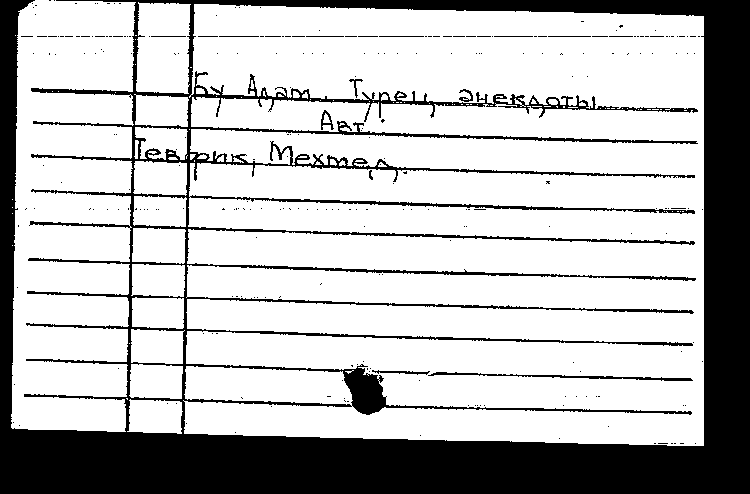 Бу Адам. Турец. анекдоты
Авт.:
Тевфик, Мехмед.